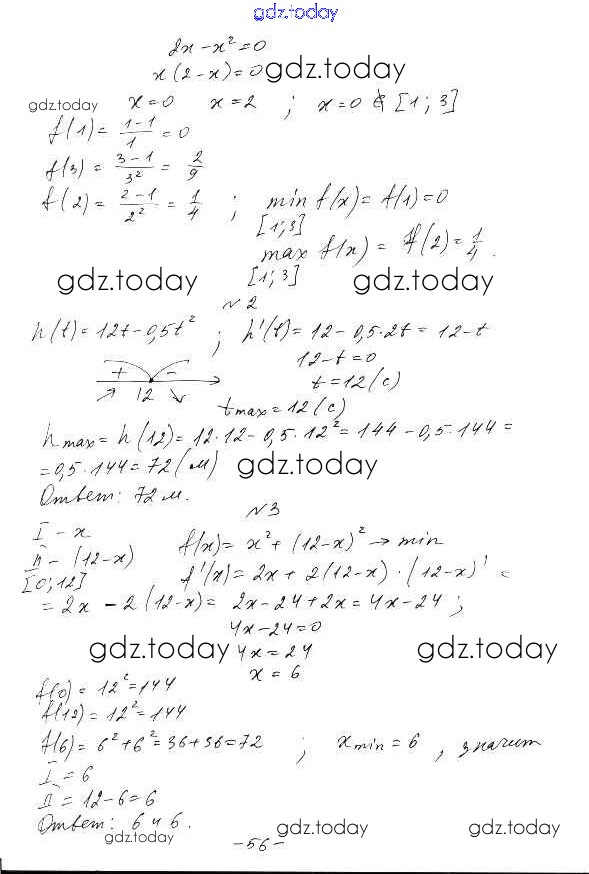 gdz.today
2x - x² = 0
x(2 - x) = 0 gdz.today
gdz.today x = 0 x = 2 ; x = 0 ∉ [1; 3]
f(1) = (1-1)/1 = 0
f(3) = (3-1)/3² = 2/9
f(2) = (2-1)/2² = 1/4 ; min f(x) = f(1) = 0
[1; 3]
max f(x) = f(2) = 1/4.
[1; 3]
gdz.today gdz.today
№ 2
h(t) = 12t - 0,5t² ; h'(t) = 12 - 0,5·2t = 12 - t
12 - t = 0
+ - t = 12 (с)
↗ 12 ↘
t max = 12 (с)
h max = h(12) = 12·12 - 0,5·12² = 144 - 0,5·144 =
= 0,5·144 = 72 (м) gdz.today
Ответ: 72 м.
№ 3
I - x f(x) = x² + (12-x)² → min
II - (12-x)
[0; 12] f'(x) = 2x + 2(12-x)·(12-x)' =
= 2x - 2(12-x) = 2x - 24 + 2x = 4x - 24 ;
4x - 24 = 0
gdz.today 4x = 24 gdz.today
x = 6
f(0) = 12² = 144
f(12) = 12² = 144
f(6) = 6² + 6² = 36 + 36 = 72 ; x min = 6 , значит
I = 6
II = 12 - 6 = 6
Ответ: 6 и 6.
gdz.today gdz.today gdz.today
- 56 -